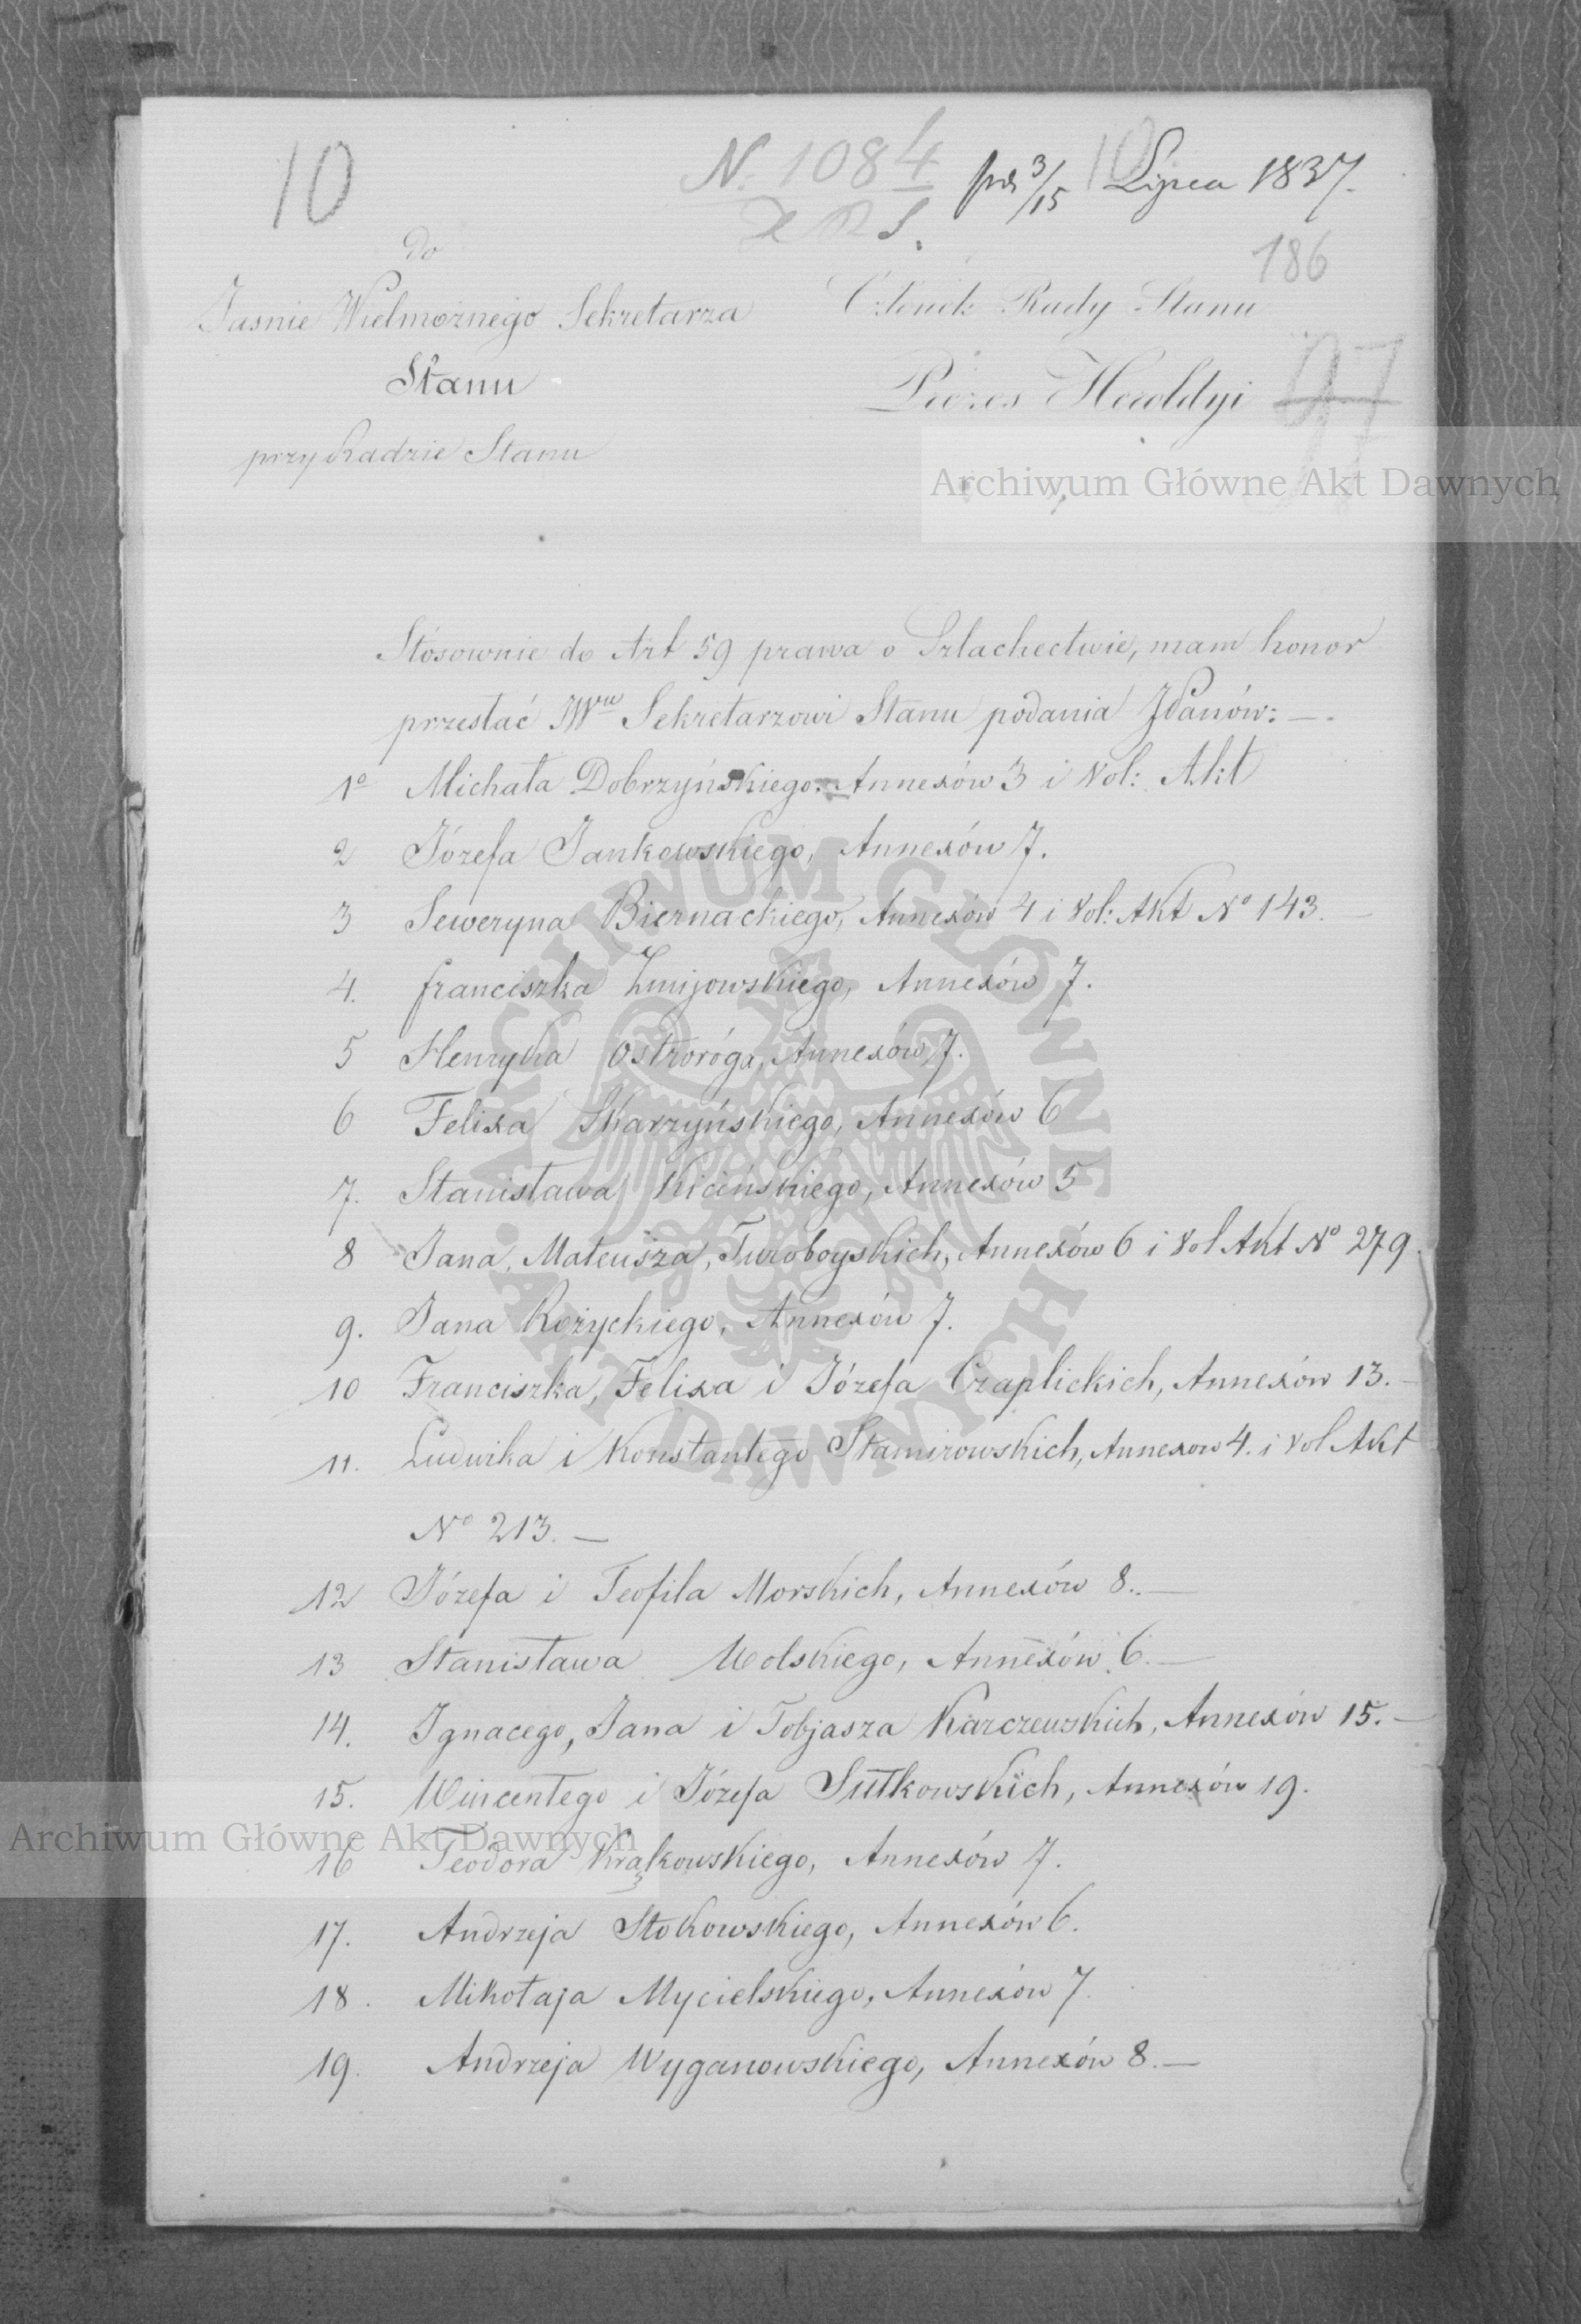 10
N. 1084 pr 3/15 Lipca 1837.
10
186
do
Jasnie Wielmożnego Sekretarza
Stanu
przy Radzie Stanu
Członek Rady Stanu
Prezes Heroldyi
97
Archiwum Główne Akt Dawnych
Stósownie do Art 59 prawa o Szlachectwie, mam honor
przesłać JWmu Sekretarzowi Stanu podania JPanów: —
1o Michała Dobrzyńskiego. Annexów 3 i Vol: Akt
2 Józefa Jankowskiego, Annexów 7.
3 Seweryna Biernackiego, Annexów 4 i Vol: Akt No 143. —
4. franciszka Żmijowskiego, Annexów 7.
5 Henryka Ostroróga, Annexów 7.
6 Felixa Skarzyńskiego, Annexów 6
7. Stanisława Kicińskiego, Annexów 5
8 Jana, Mateusza, Turoboyskich, Annexów 6 i Vol Akt No 279.
9. Jana Rożyckiego, Annexów 7.
10 Franciszka, Felixa i Józefa Czaplickich, Annexów 13. —
11. Ludwika i Konstantego Stamirowskich, Annexow 4. i Vol Akt
No 213. —
12 Józefa i Teofila Morskich, Annexów 8. —
13 Stanisława Wolskiego, Annexów 6. —
14. Ignacego, Jana i Tobjasza Karczewskich, Annexów 15. —
15. Wincentego i Józefa Sułkowskich, Annexów 19.
Archiwum Główne Akt Dawnych
16 Teodora Krąkowskiego, Annexów 7.
17. Andrzeja Stokowskiego, Annexów 6.
18. Mikołaja Mycielskiego, Annexów 7
19. Andrzeja Wyganowskiego, Annexów 8. —
ARCHIWUM GŁÓWNE
AKT DAWNYCH